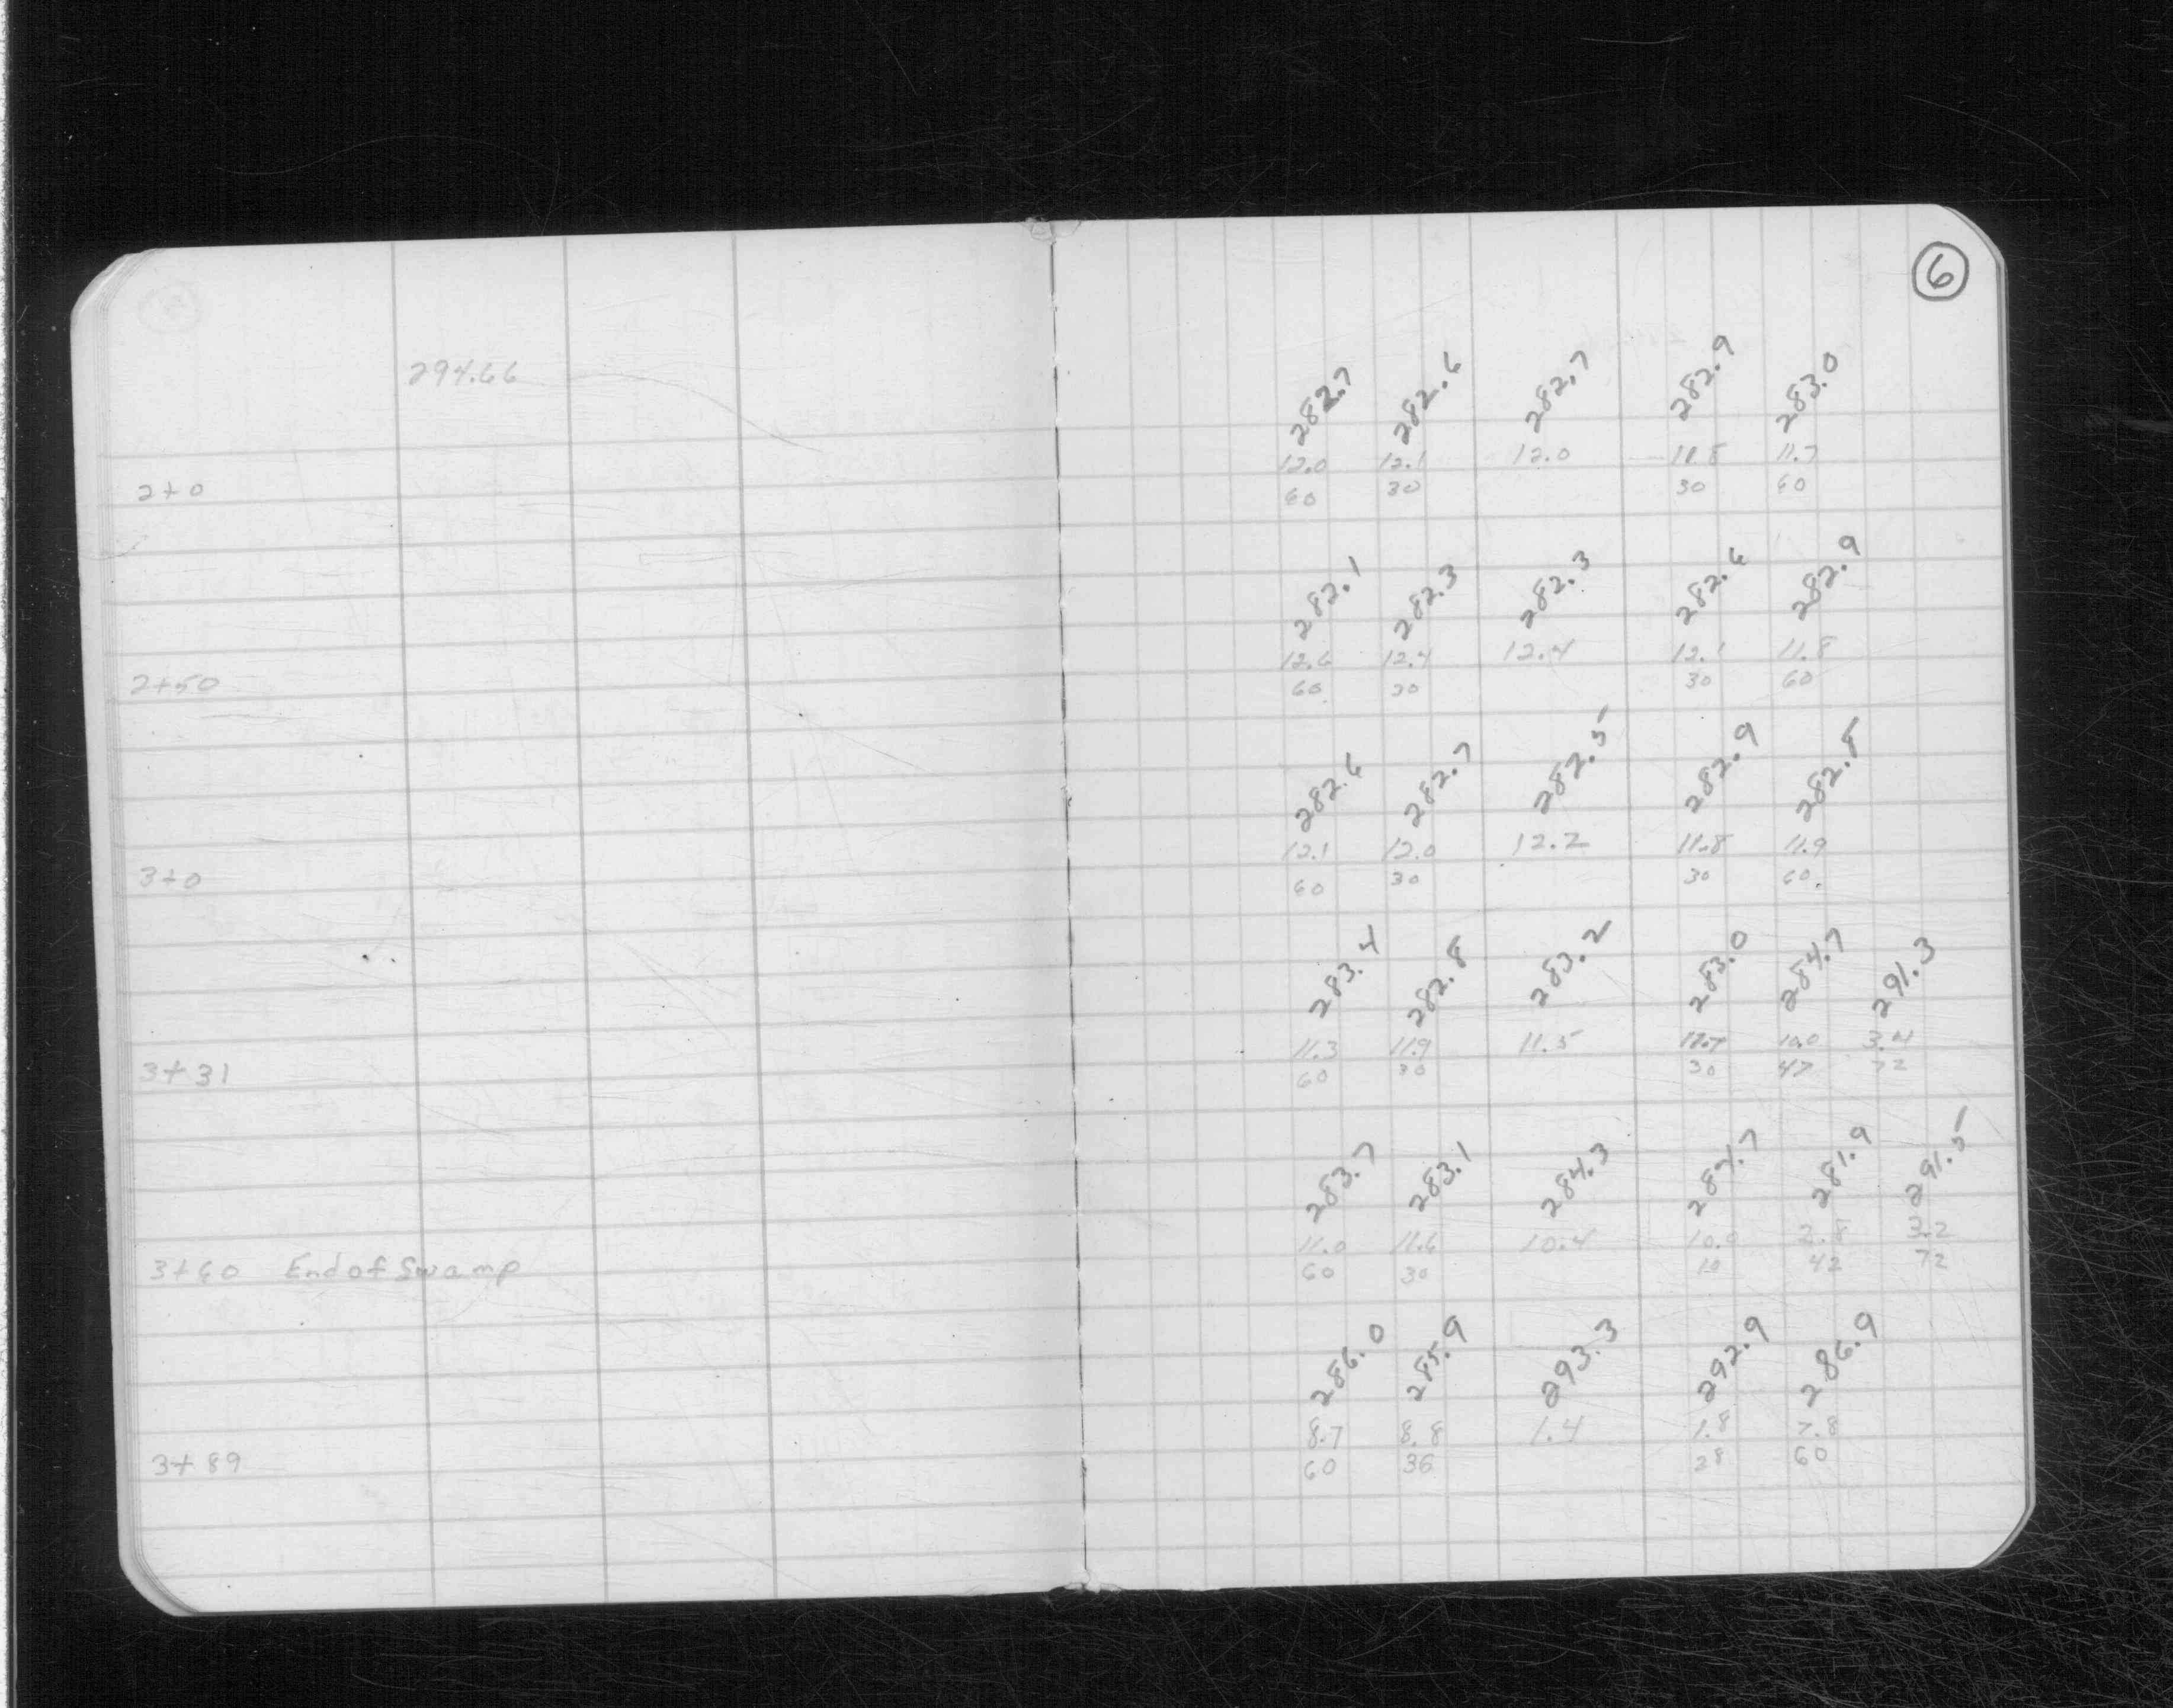 6
294.66
282.7 282.6 282.7 282.9 283.0
12.0 12.1 12.0 11.8 11.7
2+0 60 30 30 60
282.1 282.3 282.3 282.6 282.9
12.6 12.4 12.4 12.1 11.8
2+50 60 30 30 60
282.6 282.7 282.5 282.9 282.8
12.1 12.0 12.2 11.8 11.9
3+0 60 30 30 60
283.4 282.8 283.2 283.0 284.7 291.3
11.3 11.9 11.5 11.7 10.0 3.4
3+31 60 30 30 47 72
283.7 283.1 284.3 284.7 281.9 291.5
11.0 11.6 10.4 10.0 2.8 3.2
3+60 End of Swamp 60 30 10 42 72
286.0 285.9 293.3 292.9 286.9
8.7 8.8 1.4 1.8 7.8
3+89 60 36 28 60